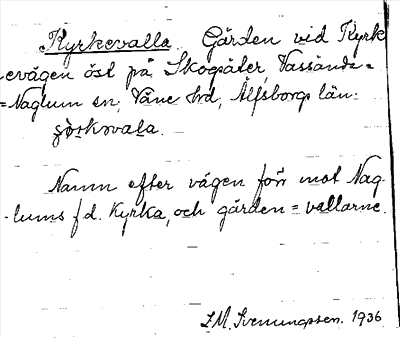 Kyrkevalla. Gården vid Kyrk
evägen öst på Skogsäter, Vassända=
=Naglum sn, Väne hrd, Älfsborgs län:
Namn efter vägen förr mot Nag-
-lums f.d. Kyrka, och gården = vallarne.
L.M. Svenungsson. 1936